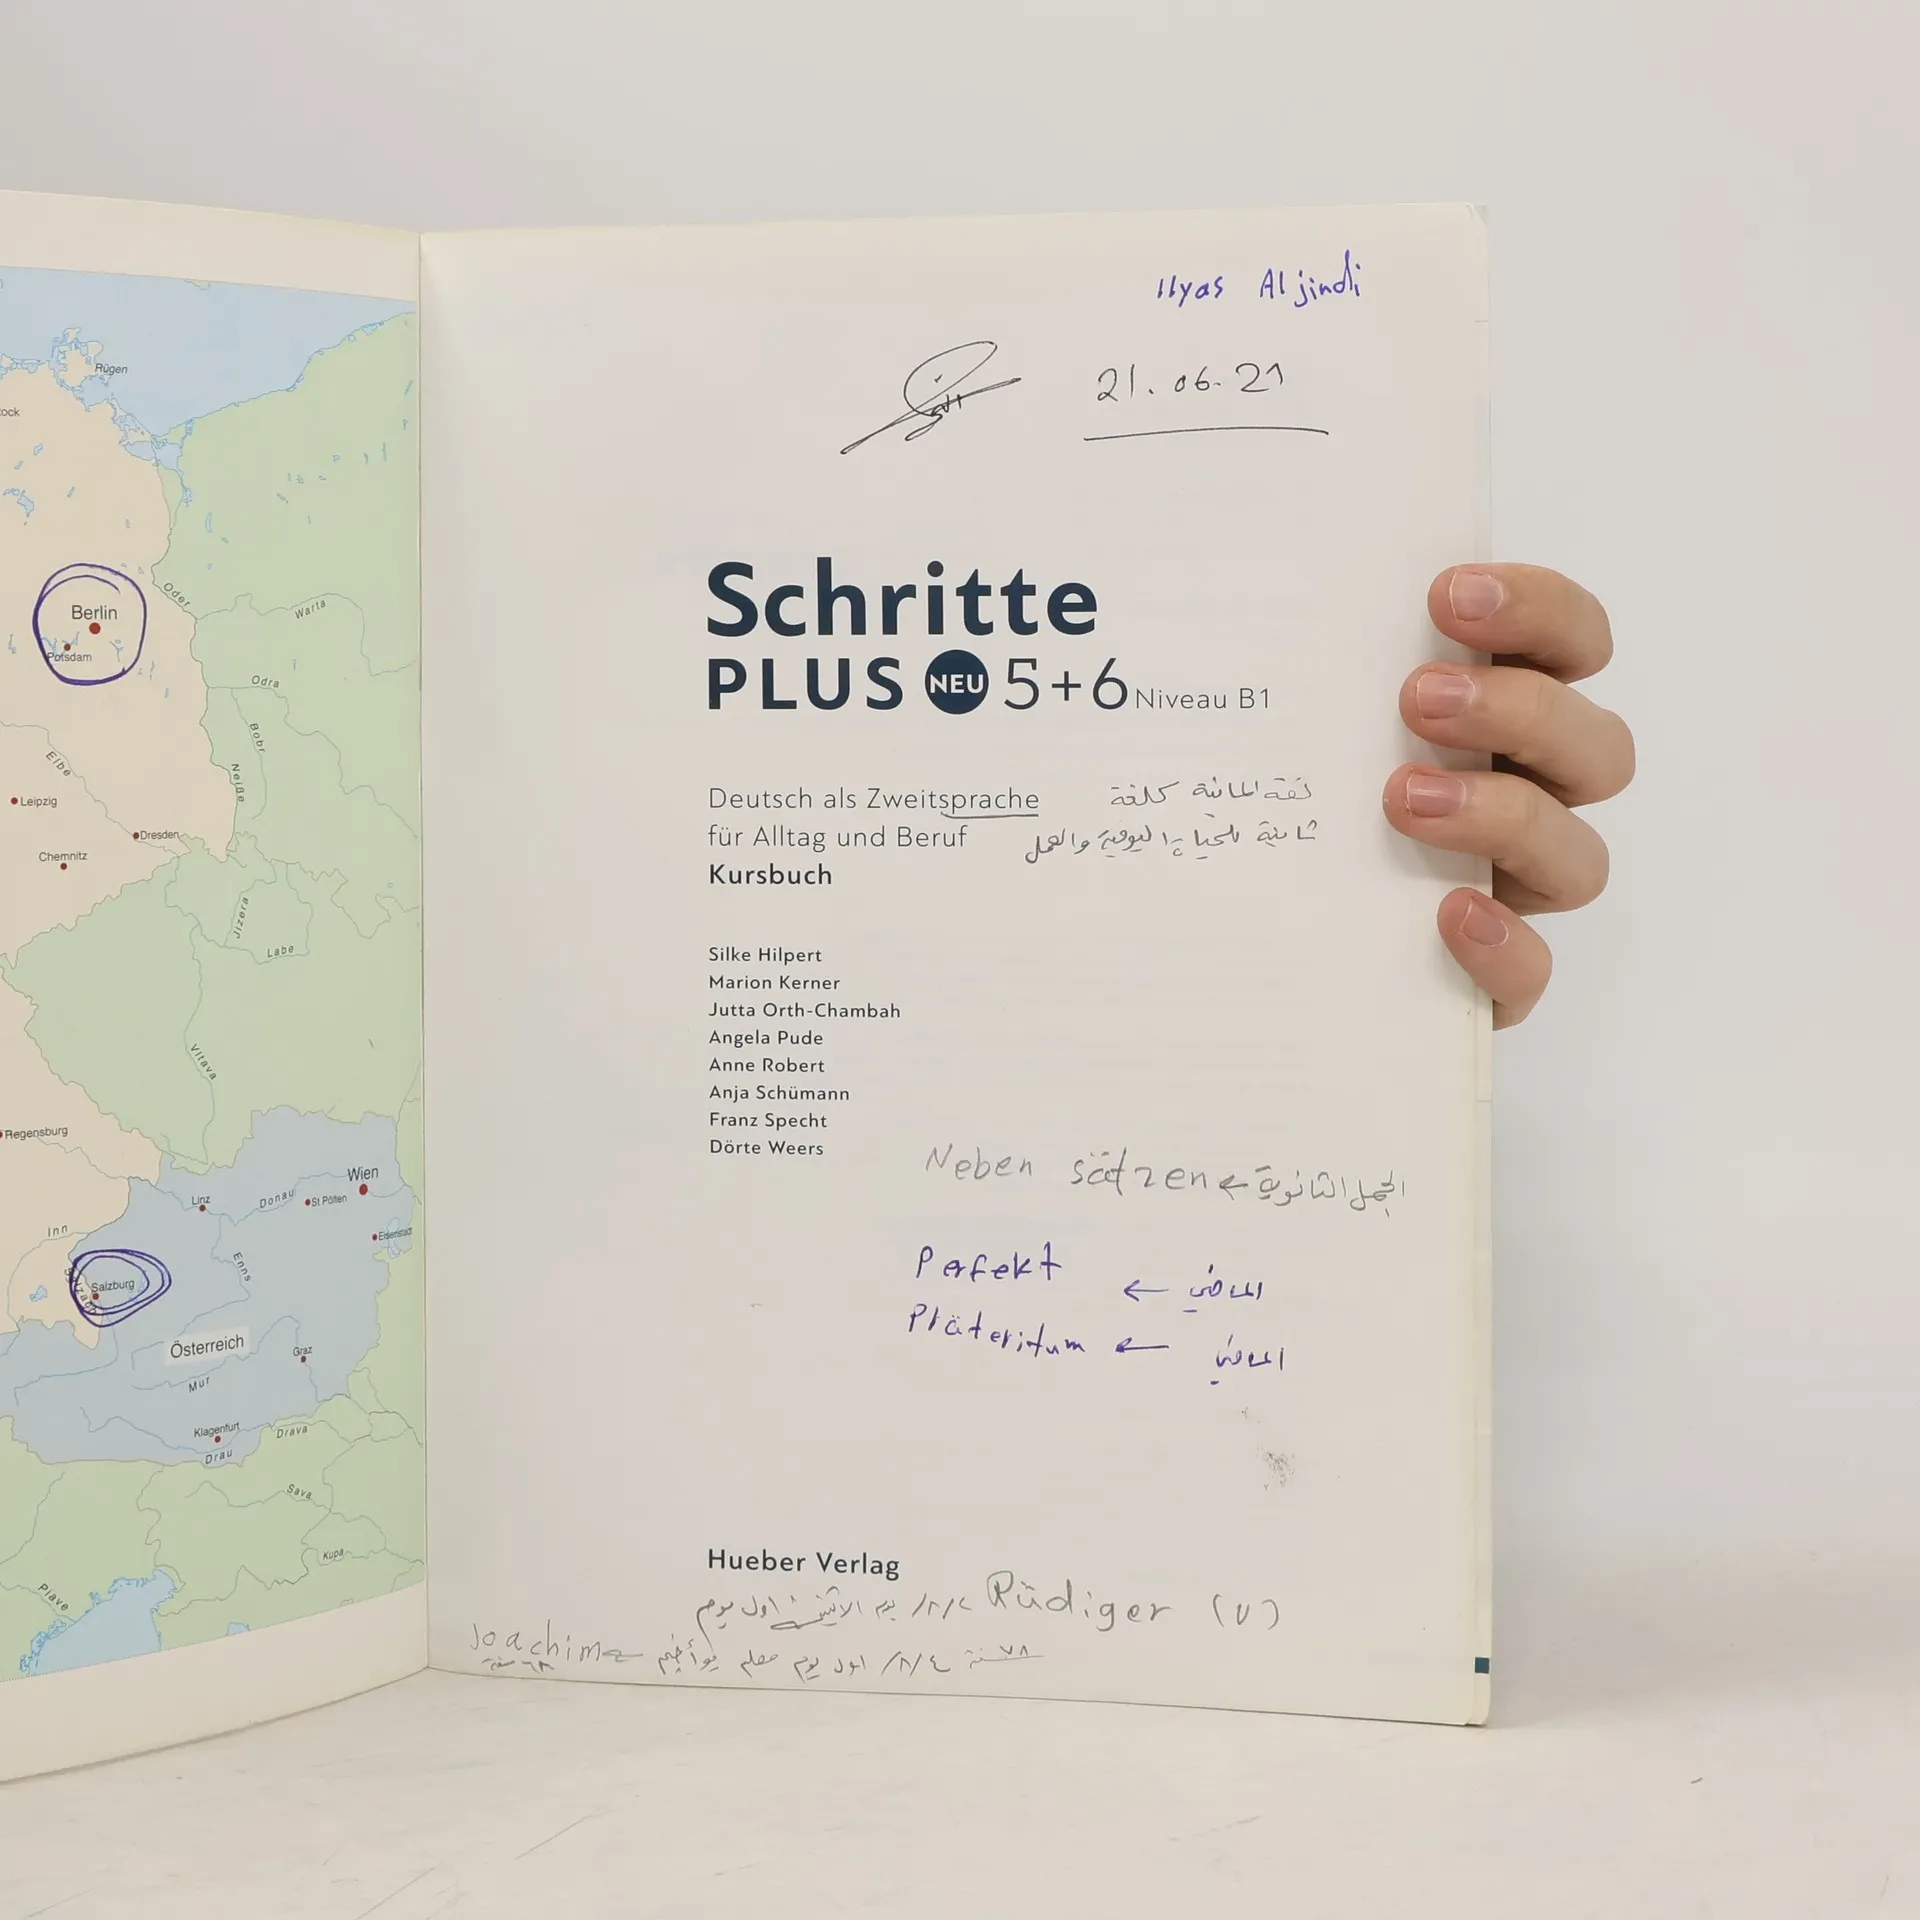 Rügen
ock
Berlin
Potsdam
Oder
Warta
Odra
Bobr
Neiße
Elbe
Leipzig
Dresden
Chemnitz
Jizera
Labe
Vltava
Regensburg
Wien
Linz
Donau
St Pölten
Eisenstadt
Inn
Enns
Salzburg
Salzach
Österreich
Graz
Mur
Klagenfurt
Drau
Drava
Sava
Kupa
Piave
Ilyas Aljindi
21.06.21
Schritte
PLUS NEU 5+6 Niveau B1
Deutsch als Zweitsprache
für Alltag und Beruf
Kursbuch
كلغة
ثانية للحياة اليومية والعمل
Silke Hilpert
Marion Kerner
Jutta Orth-Chambah
Angela Pude
Anne Robert
Anja Schümann
Franz Specht
Dörte Weers
Neben sätzen ← الجمل الثانوية
Perfekt ← الماضي
Präteritum ← الماضي
Hueber Verlag
اول يوم Rüdiger (٧)
Joachim اول يوم معلم ٨/٤/ ٧٨ سنة
٦٨ سنة